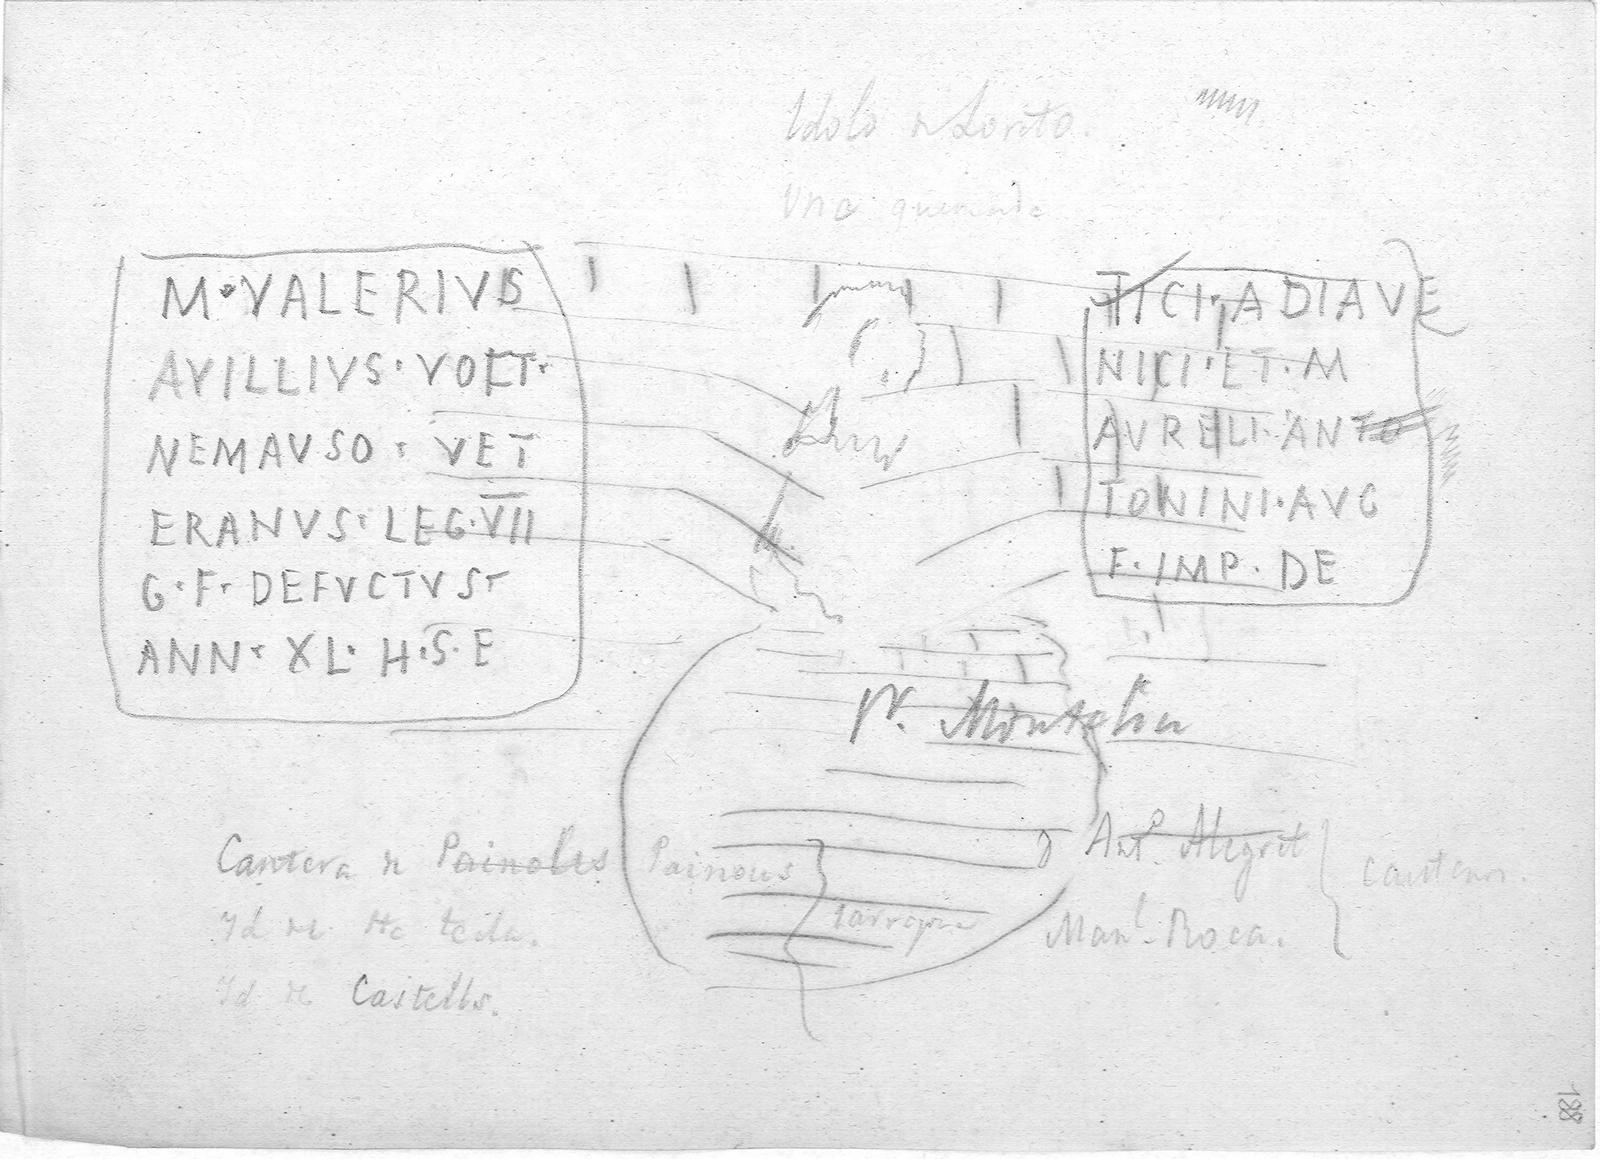 Idolo de Loreto.
Una quemada
M·VALERIVS
AVILLIVS·VOLT·
NEMAVSO· VET
ERANVS·LEG·VII
G·F·DEFVCTVS·
ANN·XL·H·S·E
TICI·ADIAVE
NICI·ET·M
AVRELI·ANTO
TONINI·AVG
F·IMP·DE
Cantera de Painoles Painous
Id de
Id de Castells.
tarragona
Antº. Alegret
Manl. Roca.
188